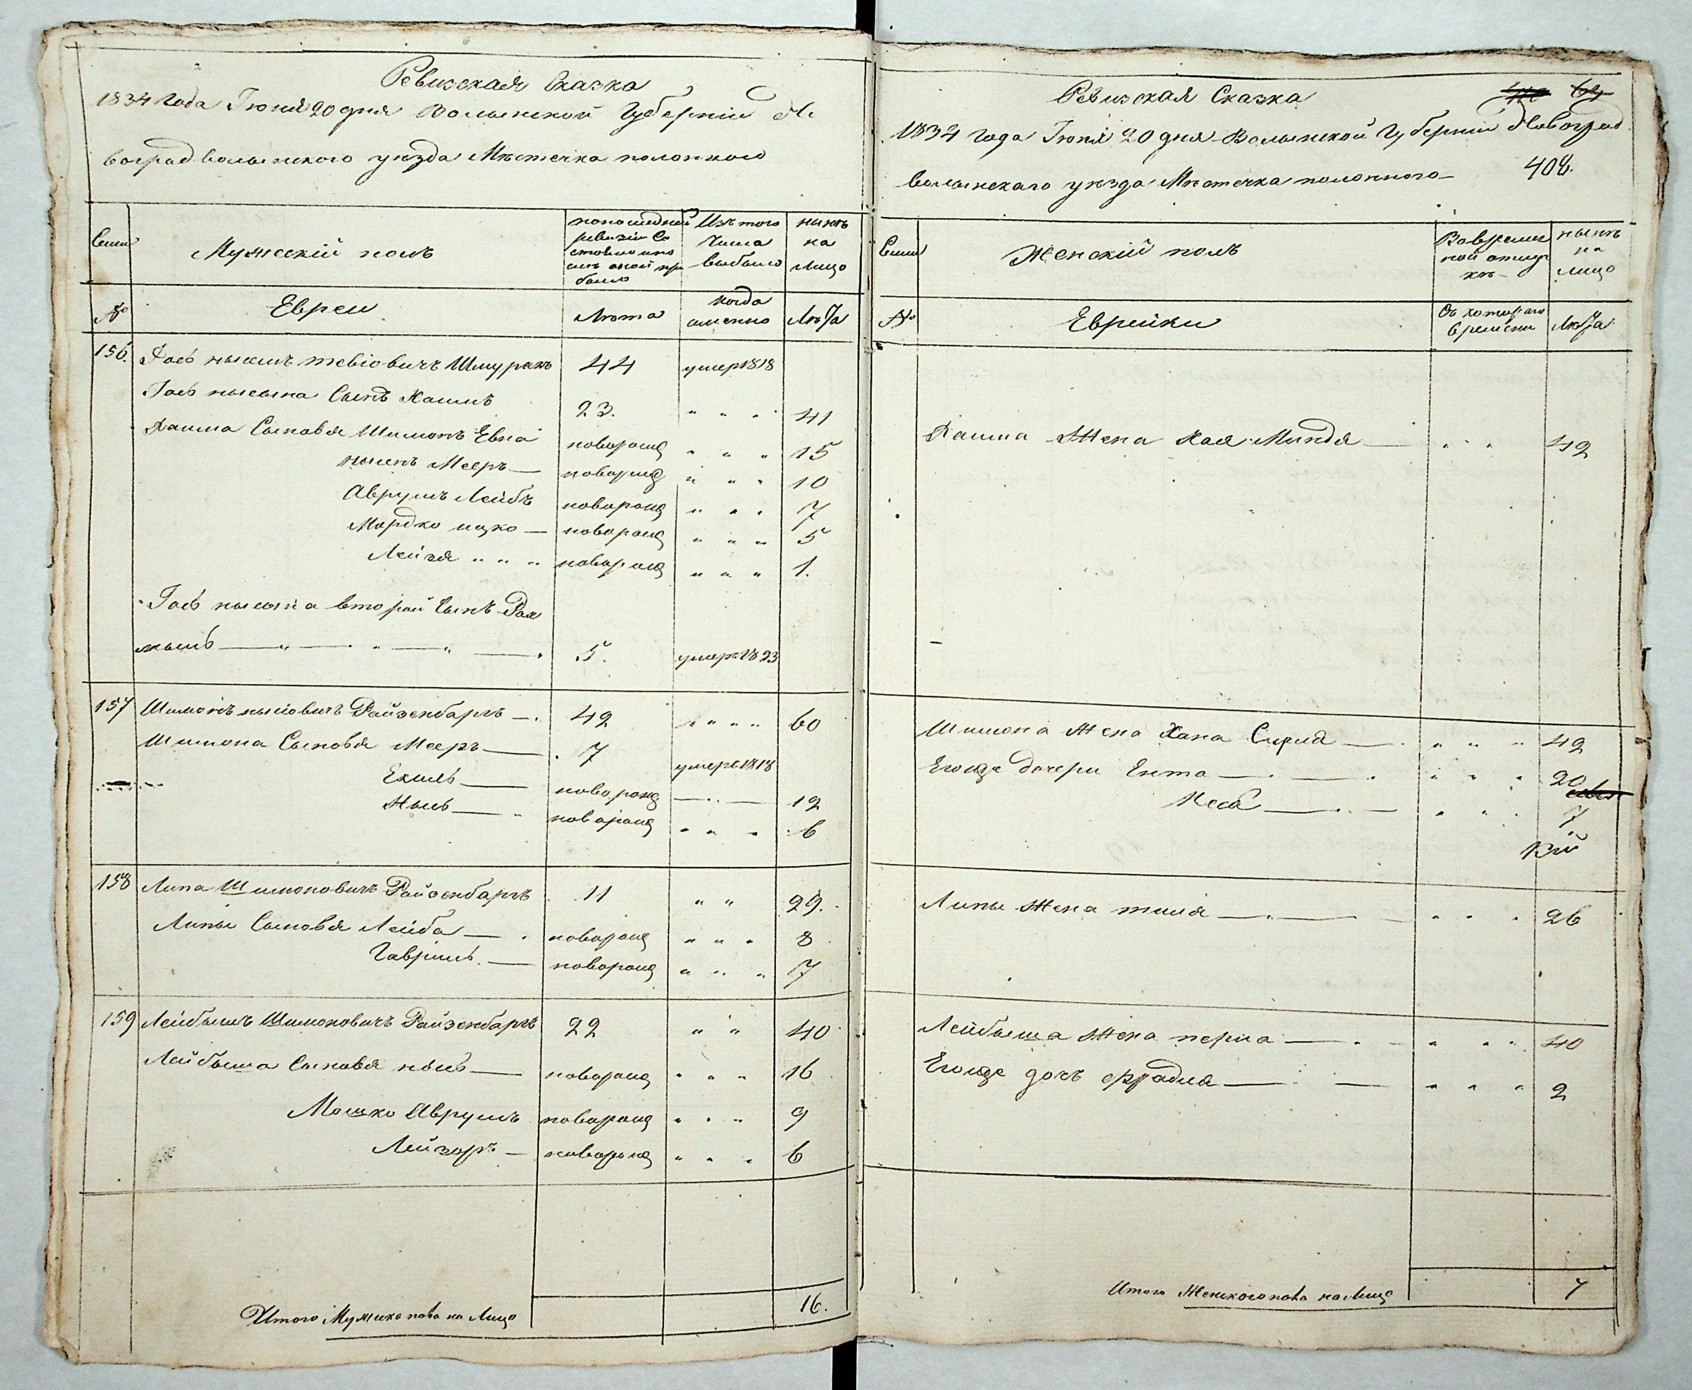 Ревизская Сказка
1834 Года Іюня 20 дня Волынской Губерніи Но
воградволынского уезда Мѣстечка полонного
Семьи
Мужескій полъ
попоследней ревизіи Со стояло и по слѣ оной при было
Изъ того Числа выбыло
нынѣ на Лицо
№
Евреи
Лѣта
когда именно
Лѣта
156. Іось нысынъ тевіовичъ Шмуракъ 44 умеръ 1818
Іось нысына Сынъ Хаимъ 23. " " " 41
Хаима Сыновья Шимонъ Евна новорожд " " " 15
нысенъ Мееръ новорожд " " " 10
Аврумъ Лейбъ новорожд " " " 7
Мордко ицко новорожд " " " 5
Лейзя " " " новорожд " " " 1.
Іось нысына второй Сынъ Рах
мыль 5. умеръ 1823
157 Шимонъ нысіовичъ Райзенбаргъ 42 " " " " 60
Шимона Сыновья Мееръ 7 умеръ 1818
Ехиль новорожд 12
Нысь новорожд " " " 6
158 Липа Шимоновичъ Райзенбаргъ 11 " " 29.
Липы Сыновья Лейба новорожд " " " 8
Гавриль новорожд " " " 7
159 Лейбышъ Шимоновичъ Райзенбаргъ 22 " " 40
Лейбыша Сыновья нысь новорожд " " " 16
Мошко Аврумъ новорожд " " " 9
Лейзоръ новорожд " " " 6
Итого Мужска пола на Лицо 16.
Ревизская Сказка
1834 года Іюня 20 дня Волынской Губерніи Новоград
волынскаго уезда Мѣстечка полонного 408.
Семьи
Женскій полъ
Вовремен ной отлуч кѣ
нынѣ на лицо
№
Еврейки
Съ котораго времени
Лѣта
Хаима Жена Хая Миндя " " " 42
Шимона Жена Хана Сирля " " " 42
Егоже дочери Ента " " " 20
Неся " " " 7
Липы Жена тиля " " " 26
Лейбыша Жена перла " " " 40
Егоже дочь фрадля " " " 2
Итого Женского пола на Лицо 7